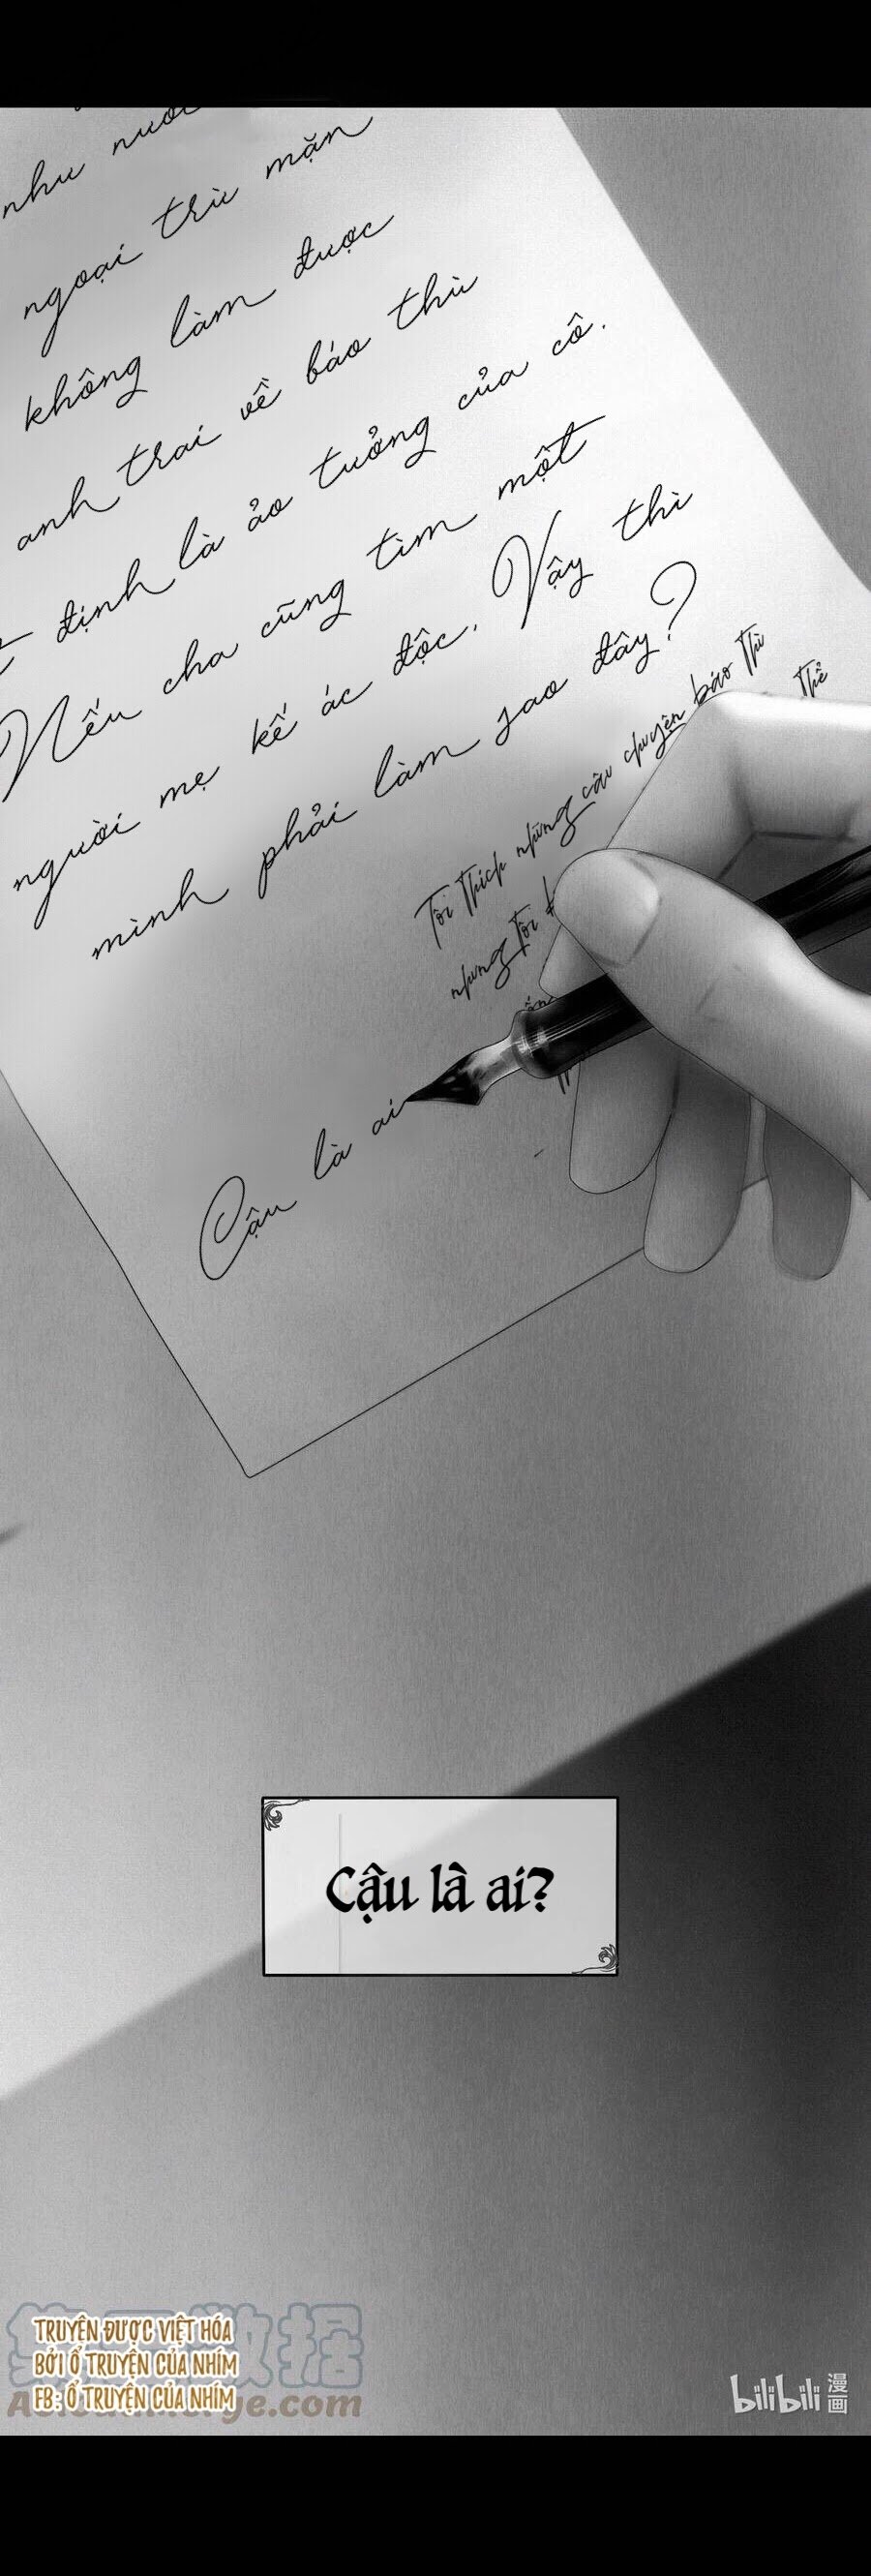 như nước
ngoại trừ mặn
không làm được
anh trai về báo thù
định là ảo tưởng của cô.
Nếu cha cũng tìm một
người mẹ kế ác độc, Vậy thì
mình phải làm sao đây?
Tôi thích những câu chuyện báo thù
nhưng tôi
thể
Cậu là ai
Cậu là ai?
TRUYỆN ĐƯỢC VIỆT HÓA
BỞI Ổ TRUYỆN CỦA NHÍM
FB: Ổ TRUYỆN CỦA NHÍM
bilibili 漫画